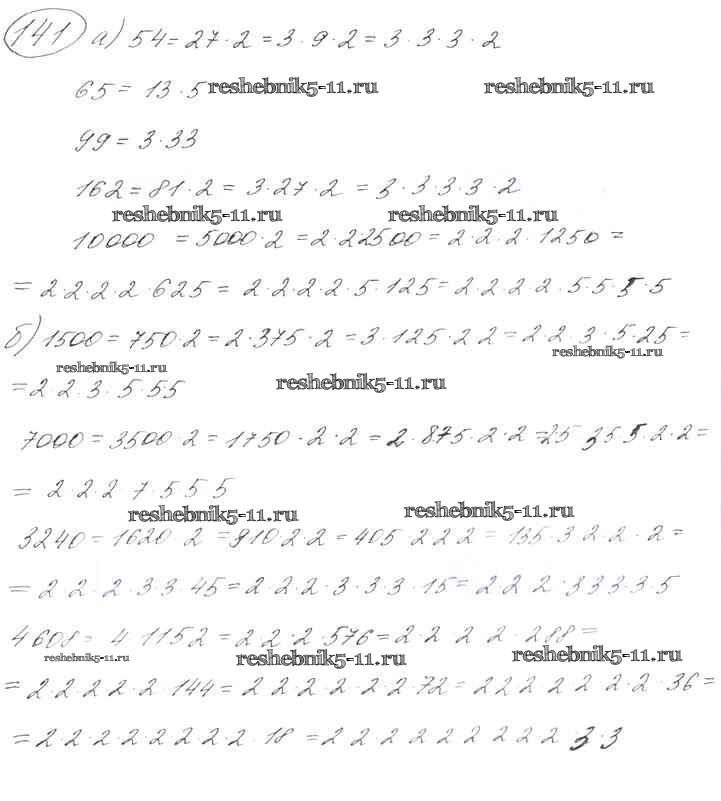 141 а) 54 = 27 · 2 = 3 · 9 · 2 = 3 · 3 · 3 · 2
65 = 13 · 5 reshebnik5-11.ru reshebnik5-11.ru
99 = 3 · 33
162 = 81 · 2 = 3 · 27 · 2 = 3 · 3 · 3 · 3 · 2
reshebnik5-11.ru reshebnik5-11.ru
10000 = 5000 · 2 = 2 · 2 2500 = 2 · 2 · 2 · 1250 =
= 2 · 2 · 2 · 2 · 625 = 2 · 2 · 2 · 2 · 5 · 125 = 2 · 2 · 2 · 2 · 5 · 5 · 5 · 5
б) 1500 = 750 · 2 = 2 · 375 · 2 = 3 · 125 · 2 2 = 2 · 2 · 3 · 5 · 25 =
reshebnik5-11.ru reshebnik5-11.ru reshebnik5-11.ru
= 2 2 · 3 · 5 · 5 5
7000 = 3500 · 2 = 1750 · 2 · 2 = 2 · 875 · 2 · 2 = 5 5 · 2 · 2 =
= 2 2 · 2 7 · 5 5 5
reshebnik5-11.ru reshebnik5-11.ru
3240 = 1620 · 2 = 810 2 · 2 = 405 · 2 2 2 = 135 · 3 2 · 2 · 2 =
= 2 2 · 2 · 3 · 3 45 = 2 · 2 · 2 · 3 · 3 · 3 · 15 = 2 2 2 · 3 3 3 · 3 · 5
4608 = 4 1152 = 2 · 2 · 2 · 576 = 2 · 2 2 2 · 288 =
reshebnik5-11.ru reshebnik5-11.ru reshebnik5-11.ru
= 2 · 2 · 2 2 · 2 · 144 = 2 2 2 · 2 · 2 · 2 · 72 = 2 2 2 2 2 2 · 2 · 36 =
= 2 · 2 · 2 · 2 · 2 · 2 · 2 · 2 · 18 = 2 2 2 2 2 2 2 2 2 3 · 3